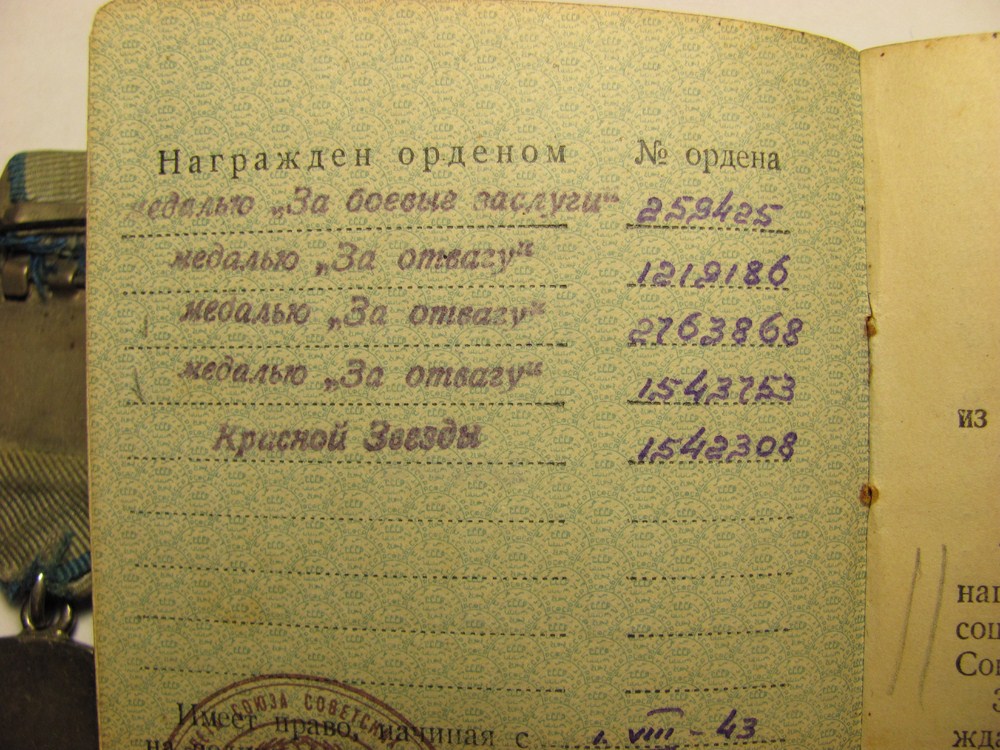 Награжден орденом № ордена
медалью „За боевые заслуги“ 259425
медалью „За отвагу“ 1219186
медалью „За отвагу“ 2763868
медалью „За отвагу“ 1543753
Красной Звезды 1542308
СОЮЗА СОВЕТСКИ
Имеет право, начиная с 1. VIII - 43
на
из
наг
сои
Сов
З
жд